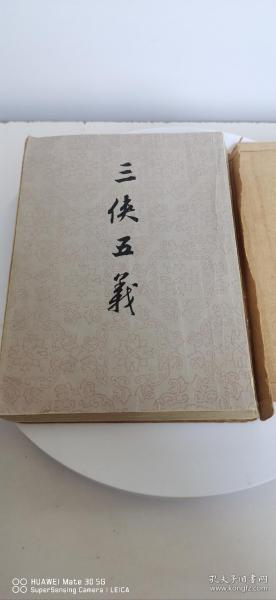 三侠五義
HUAWEI Mate 30 5G
SuperSensing Camera | LEICA
孔夫子旧书网
www.kongfz.com